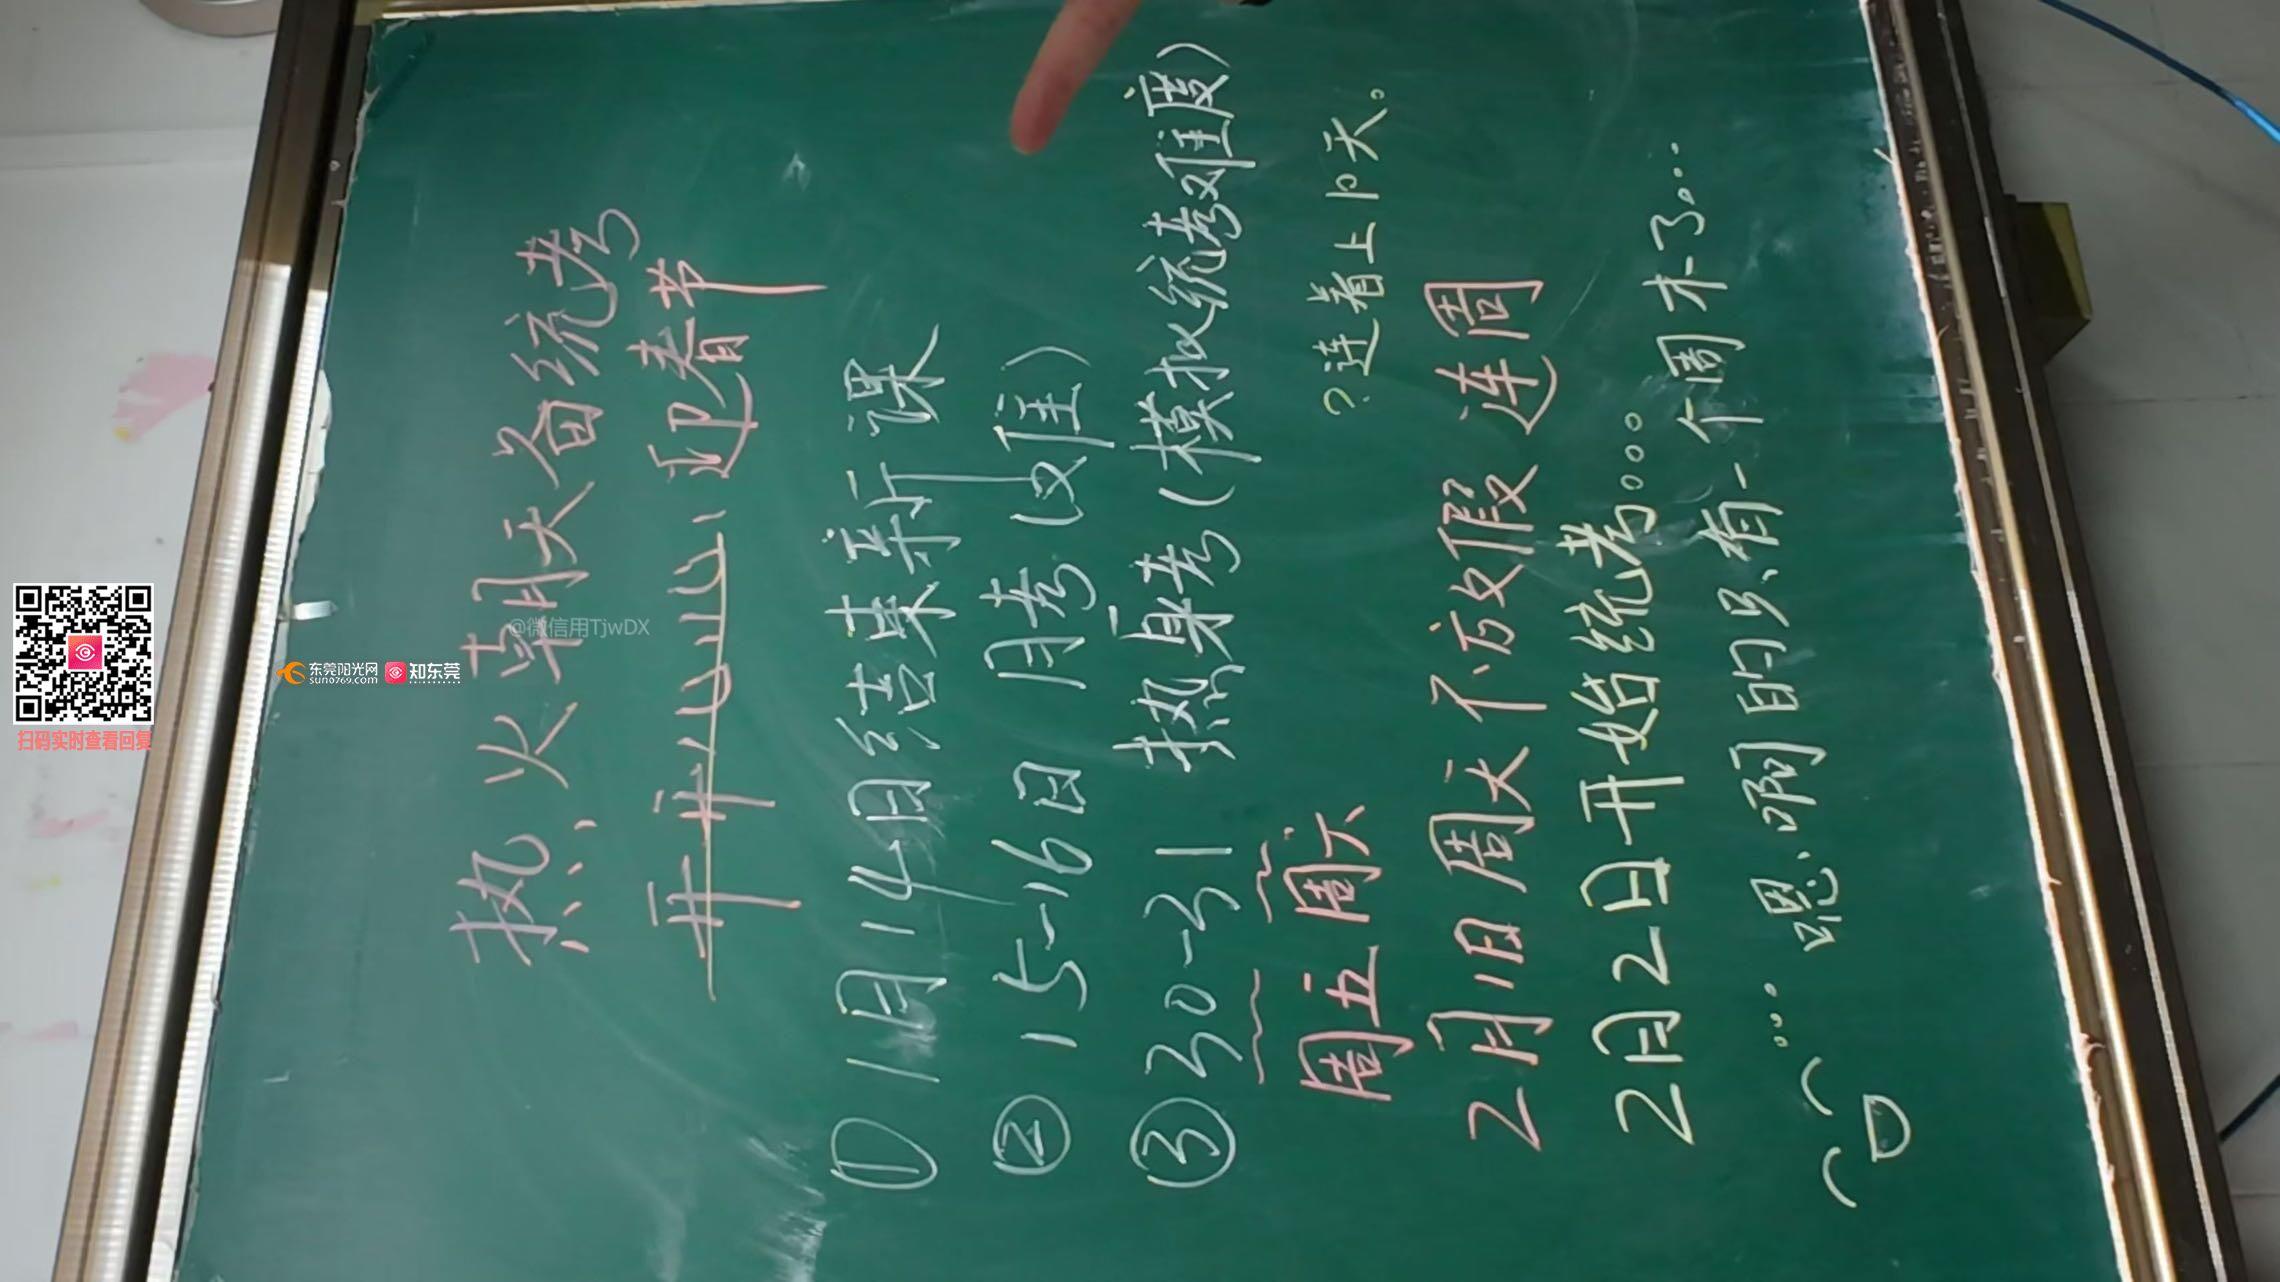 热火朝天备统考
开开心心心心迎春节
① 1月14日结束新课
② 15-16日 月考(收准)
③ 30-31 热身考(模拟统考难度)
周五 周六
?连着上10天。
2月1日周天不放假 连周
2月2日开始统考。。。
。。。嗯、啊、的多、有一个周末了。。。
@微信用TjwDX
东莞阳光网
sun0769.com
知东莞
扫码实时查看回复